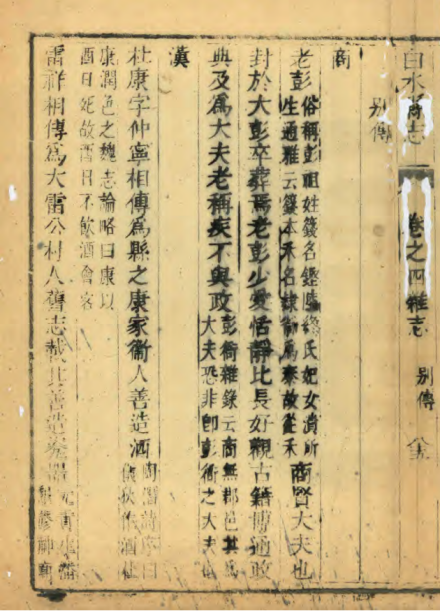 白水縣志 卷之四雜志 別傳
別傳
商
老彭 俗稱彭祖姓籛名鏗陸終氏妃女潰所
生通雅云籛本禾名 故從禾 商賢大夫也
封於大彭卒葬焉老彭少愛恬靜比長好觀古籍博通政
典及爲大夫老稱疾不與政 彭衙雜錄云商無郡邑其爲
大夫恐非卽彭衙之大夫
漢
杜康字仲寧相傳爲縣之康家衞人善造酒 陶潛詩序曰
儀狄作酒杜
康潤色之魏志論略曰康以
酉日死故酉日不飲酒會客
雷祥相傳爲大雷公村人舊志載其善造